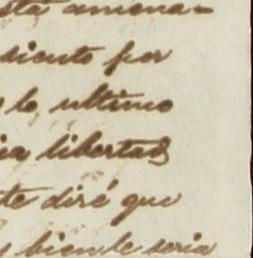 sta amena-
siento por
lo ultimo
ia libertad
te diré que
bien le seria